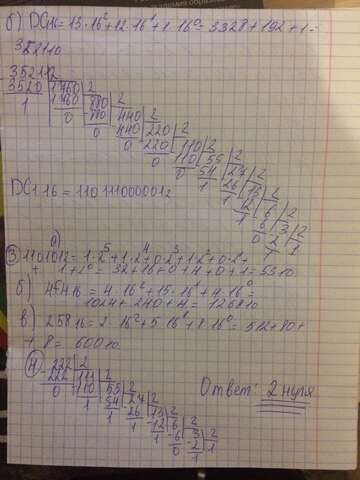 б) DC1₁₆ = 13·16²+12·16¹+1·16⁰ = 3328+192+1 =
3521₁₀
3521 2
3520 1760 2
1 1760 880 2
0 880 440 2
0 440 220 2
0 220 110 2
0 110 55 2
0 54 27 2
1 26 13 2
1 12 6 2
1 6 3 2
0 2 1
1
DC1₁₆ = 110111000001₂
③ а)
110101₂ = 1·2⁵+1·2⁴+0·2³+1·2²+0·2¹+
+ 1·2⁰ = 32+16+0+4+0+1 = 53₁₀
б) 4F4₁₆ = 4·16²+15·16¹+4·16⁰ =
1024+240+4 = 1268₁₀
в) 258₁₆ = 2·16²+5·16¹+8·16⁰ = 512+80+
+ 8 = 600₁₀
④ 222 2
222 111 2
0 110 55 2
1 54 27 2
1 26 13 2
1 12 6 2
1 6 3 2
0 2 1
1
Ответ: 2 нуля